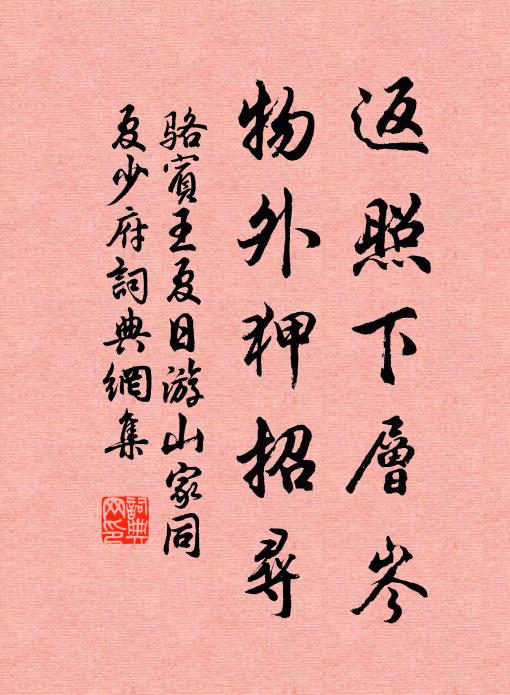 返照下層岑
物外狎招尋
骆賓王夏日游山家同
夏少府詞典網集
詞典
网印